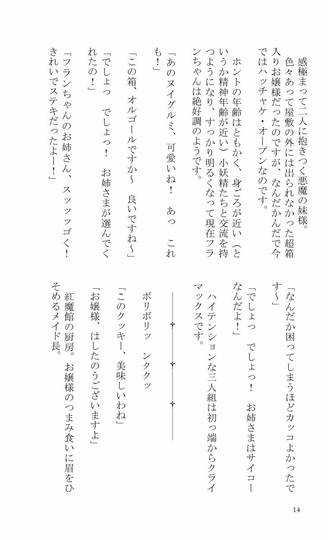 感極まって二人に抱きつく悪魔の妹様。
色々あって屋敷の外には出られなかった超箱
入りお嬢様だったのですが、なんだかんだで今
ではハッチャケ・オープンなのです。
ホントの年齢はともかく、身ごろが近い（と
いうか精神年齢が近い）小妖精たちと交流を持
つようになり、すっかり明るくなって現在フラ
ンちゃんは絶好調のようです。
「あのヌイグルミ、可愛いね！　あっ　これ
も！」
「この箱、オルゴールですか～　良いですね～」
「でしょっ　でしょっ！　お姉さまが選んでく
れたの！」
「フランちゃんのお姉さん、スッッッゴく！
きれいでステキだったよー！」
「なんだか困ってしまうほどカッコよかったで
す～」
「でしょっ　でしょっ！　お姉さまはサイコー
なんだよ！」
ハイテンションな三人組は初っ端からクライ
マックスです。
ボリボリッ　ンククッ
「このクッキー、美味しいわね」
「お嬢様、はしたのうございますよ」
紅魔館の厨房。お嬢様のつまみ食いに眉をひ
そめるメイド長。
14